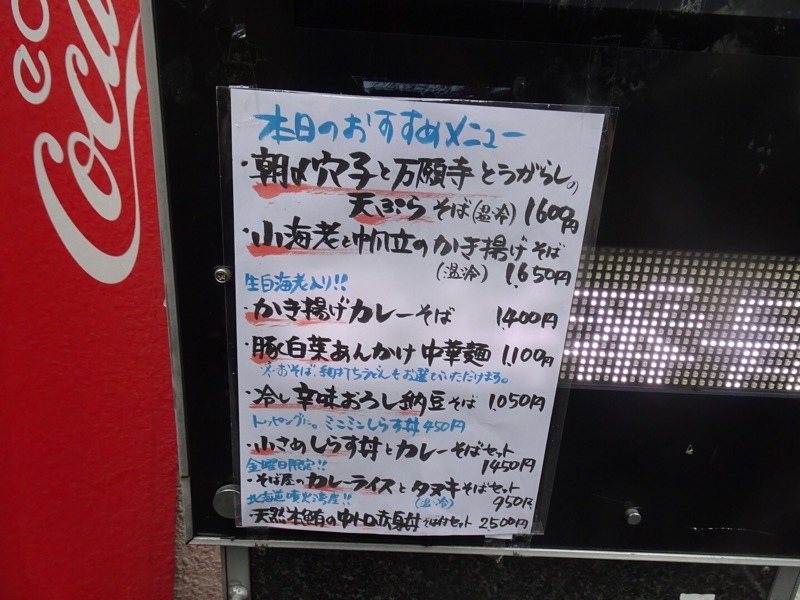 Coca
本日のおすすめメニュー
・朝〆穴子と万願寺とうがらしの
天ぷらそば(温冷) 1600円
・小海老と帆立のかき揚げそば
(温冷) 1,650円
生白海老入り!!
・かき揚げカレーそば 1,400円
・豚白菜あんかけ中華麺 1,100円
※おそば、手打ちうどんもお選びいただけます。
・冷し辛味おろし納豆そば 1,050円
トッピングに。ミニミニしらす丼 450円
・小さめしらす丼とカレーそばセット
1450円
金曜日限定!!
・そば屋のカレーライスとタヌキそばセット
(温冷) 950円
北海道噴火湾産!!
・天然本鮪の中トロ赤身丼そば付セット 2500円